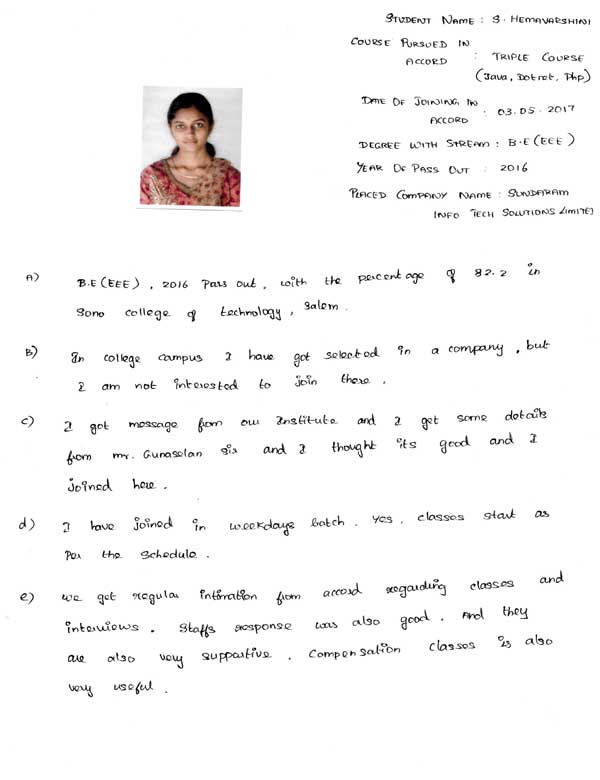 STUDENT NAME : S. HEMAVARSHINI
COURSE PURSUED IN
ACCORD : TRIPLE COURSE
(Java, Dotnet, Php)
DATE OF JOINING IN
ACCORD : 03.05.2017
DEGREE WITH STREAM : B.E (EEE)
YEAR OF PASS OUT : 2016
PLACED COMPANY NAME : SUNDARAM
INFO TECH SOLUTIONS LIMITED
A) B.E (EEE), 2016 Pass out, with the percentage of 82.2 in
Sona college of technology, Salem.
B) In college campus I have got selected in a company, but
I am not interested to join there.
c) I got message from our Institute and I get some details
from mr. Gunaselan sir and I thought its good and I
joined here.
d) I have joined in weekdays batch. Yes, classes start as
Per the schedule.
e) We get regular intimation from accord regarding classes and
interviews. Staffs response was also good. And they
are also very supportive. Compensation classes is also
very useful.